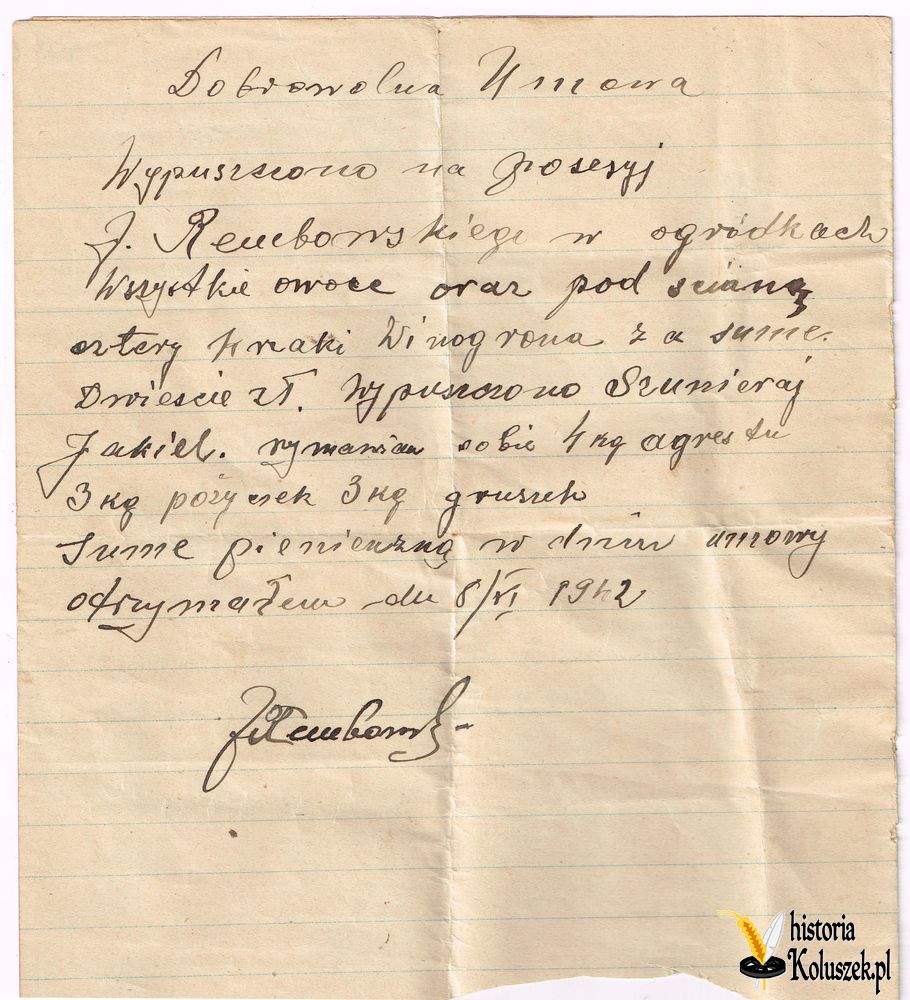 Dobrowolna Umowa
Wypuszczono na posesyj
J. Rembowskiego w ogródkach
Wszystkie owoce oraz pod scianą
cztery krzaki Winogrona za sume.
Dwieście zł. Wypuszczono
Jakiel. sobie 4 kg agrestu
3 kg pożyczek 3 kg gruszek
Sume pienienzną w dniu umowy
otrzymałem dn 8/VI 1942
J. Rembowski
historia
Koluszek.pl